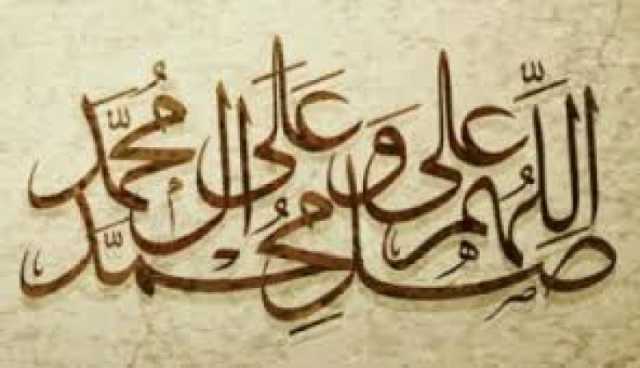 اللّٰهم صل على محمّد وعلى آل محمّد